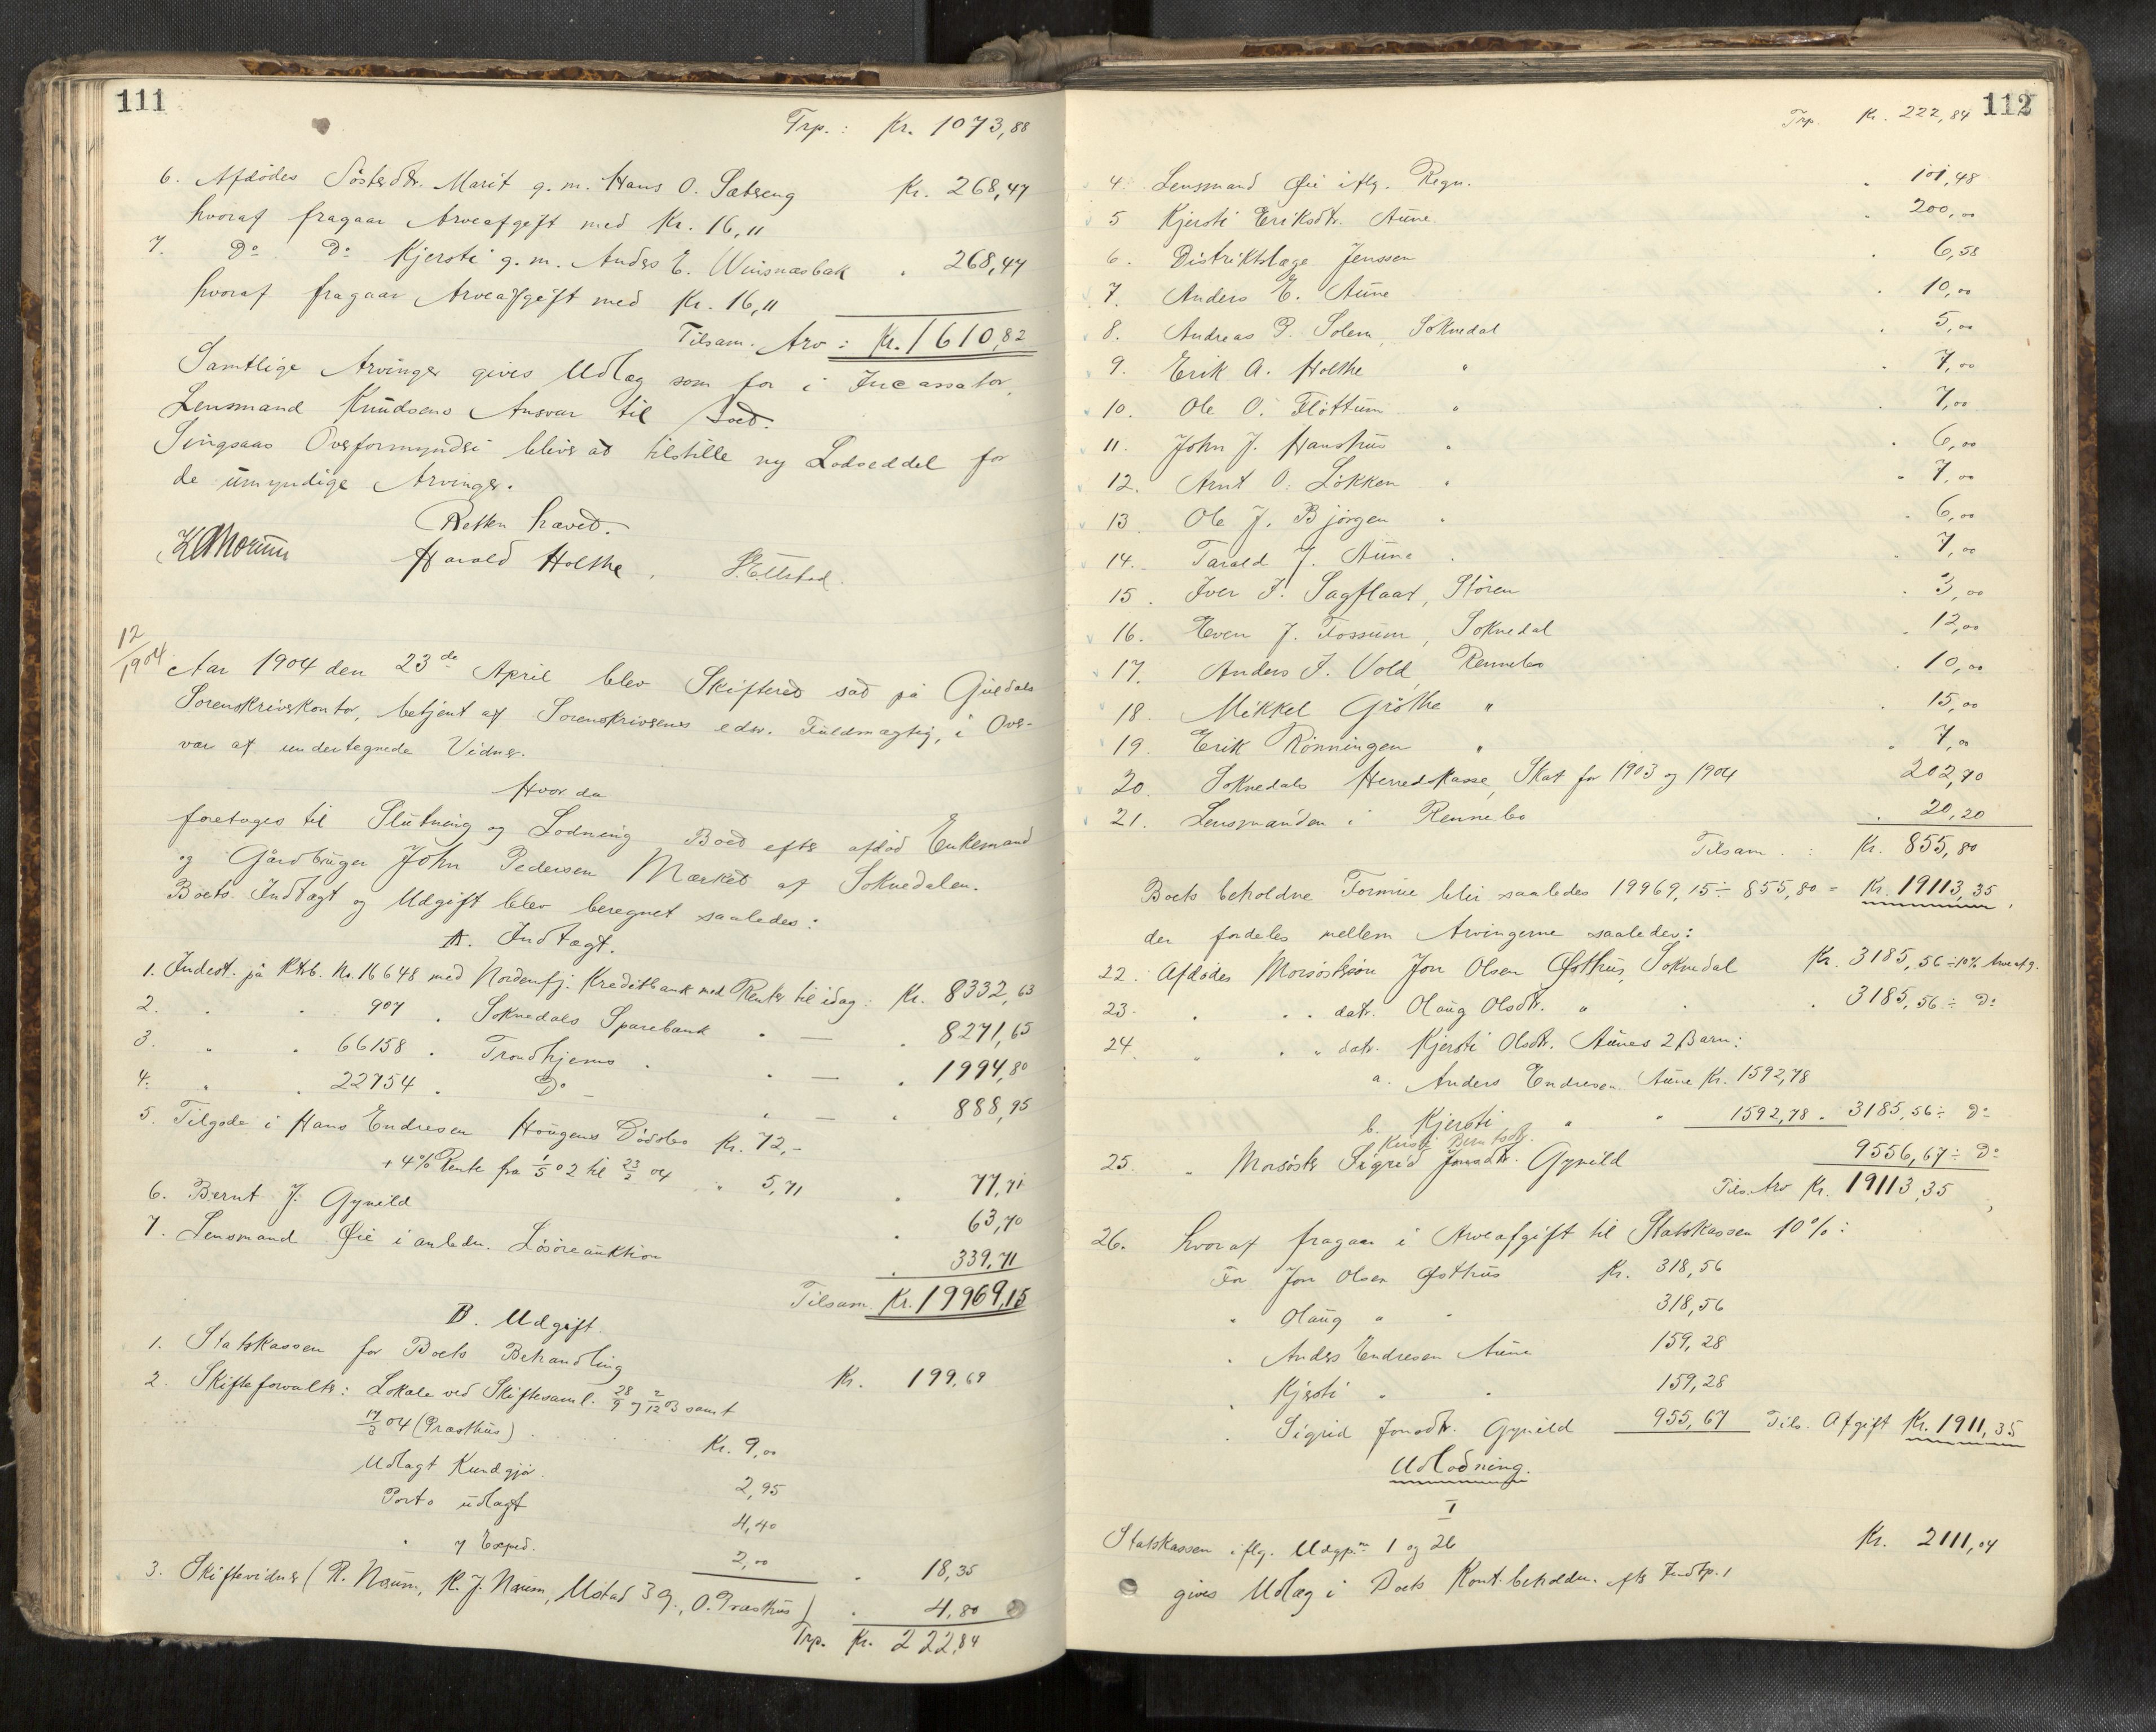 111
Trp. : Kr. 1073,88
6. Afdödes Söstersdtr. Marit g. m. Hans O. Sætreng Kr. 268,47
hvoraf fragaar Arveafgift med Kr. 16,11
7. Do Do Kjersti g. m. Anders E. Winsnæsbak " 268,47
hvoraf fragaar Arveafgift med Kr. 16,11
Tilsam. Arv : Kr. 1610,82
Samtlige Arvinger gives Udlæg som for i Incassator,
Lensmand Knudsens Ansvar til
Singsaas Overformynderi bliver at tilstille ny Lodseddel for
de umyndige Arvinger.
Retten hævet.
Harald Holthe
12/1904
Aar 1904 den 23de April blev Skifteret sat på Guldals
Sorenskriverkontor, betjent af Sorenskriverens edsv. Fuldmægtig, i Over-
vær af undertegnede Vidner.
Hvor da
foretoges til Slutning og Lodning Boet efter afdöd Enkemand
og Gårdbruger John Pedersen Mærket af Soknedalen.
Boets Indtægt og Udgift blev beregnet saaledes:
A. Indtægt.
1. Indest. på Ktrb. No. 16648 med Nordenfj. Kreditbank med Renter til idag : Kr. 8332,63
2. " " 907 " Soknedals Sparebank " — " 8271,65
3. " " 66158 " Trondhjems " " — " 1994,80
4. " " 22754 " Do " — " 888,95
5. Tilgode i Hans Endresen Haugens Dödsbo Kr. 72,-
+ 4% Rente fra 1/5 02 til 23/3 04 " 5,71 " 77,71
6. Bernt J. Gynild " 63,70
7. Lensmand Øie i anledn. Lösöreauktion " 339,71
Tilsam. Kr. 19969,15
B. Udgift.
1. Statskassen for Boets Behandling Kr. 199,69
2. Skifteforvalter: Lokale ved Skiftesaml. 28/9 og 2/12 03 samt
17/3 04 (Præsthus) Kr. 9,00
Udlagt Kundgjör. 2,95
Porto udlagt 4,40
" y Exped. 2,00 " 18,35
3. Skiftevidner (R. Næum, K. J. Næum, Ustad 3 g., O. Præsthus) " 4,80
Trp. Kr. 222,84
112
Trp. Kr. 222,84
4. Lensmand Øie iflg. Regn. " 101,48
5 Kjersti Eriksdtr. Aune " 200,00
6. Distriktslæge Jenssen " 6,58
7. Anders E. Aune " 10,00
8. Andreas P. Solem, Soknedal " 5,00
9. Erik A. Holthe " " 7,00
10. Ole O. Flöttum " " 7,00
11. John J. Hanshus " " 6,00
12. Arnt O. Lökken " " 7,00
13 Ole J. Björgen " " 6,00
14. Tarald J. Aune " " 7,00
15. Iver I. Sagflaat, Stören " 3,00
16. Even J. Fossum, Soknedal " 12,00
17. Anders I. Vold, Rennebo " 10,00
18. Mikkel Gröthe " " 15,00
19. Erik Rönningen " " 7,00
20. Soknedals Herredskasse, Skat for 1903 og 1904 202,70
21. Lensmanden i Rennebo " 20,20
Tilsam. : Kr. 855,80
Boets beholdne Formue blir saaledes 19969,15 ÷ 855,80 = Kr. 19113,35,
der fordeles mellem Arvingerne saaledes:
22. Afdödes Morsöstersön Jon Olsen Østhus, Soknedal Kr. 3185,56 ÷ 10% Arveafg.
23. " " datr. Olaug Olsdtr. " " " 3185,56 ÷ Do
24. " " datr. Kjersti Olsdtr. Aunes 2 Barn:
a. Anders Endresen Aune Kr. 1592,78
b. Kjersti " " 1592,78 " 3185,56 ÷ Do
Kersti Berntsdtr.
25. " Morsöster Sigrid Jonsdtr. Gynild 9556,67 ÷ Do
Tils. Arv Kr. 19113,35
26. hvoraf fragaar i Arveafgift til Statskassen 10%:
For Jon Olsen Østhus Kr. 318,56
" Olaug " " 318,56
" Anders Endresen Aune 159,28
" Kjersti " " 159,28
" Sigrid Jonsdtr. Gynild 955,67 Tils. Afgift Kr. 1911,35
Udlodning.
I
Statskassen iflg. Udgp. 1 og 26 Kr. 2111,04
gives Udlæg i Boets Kont. beholdn. eftr Indtp. 1